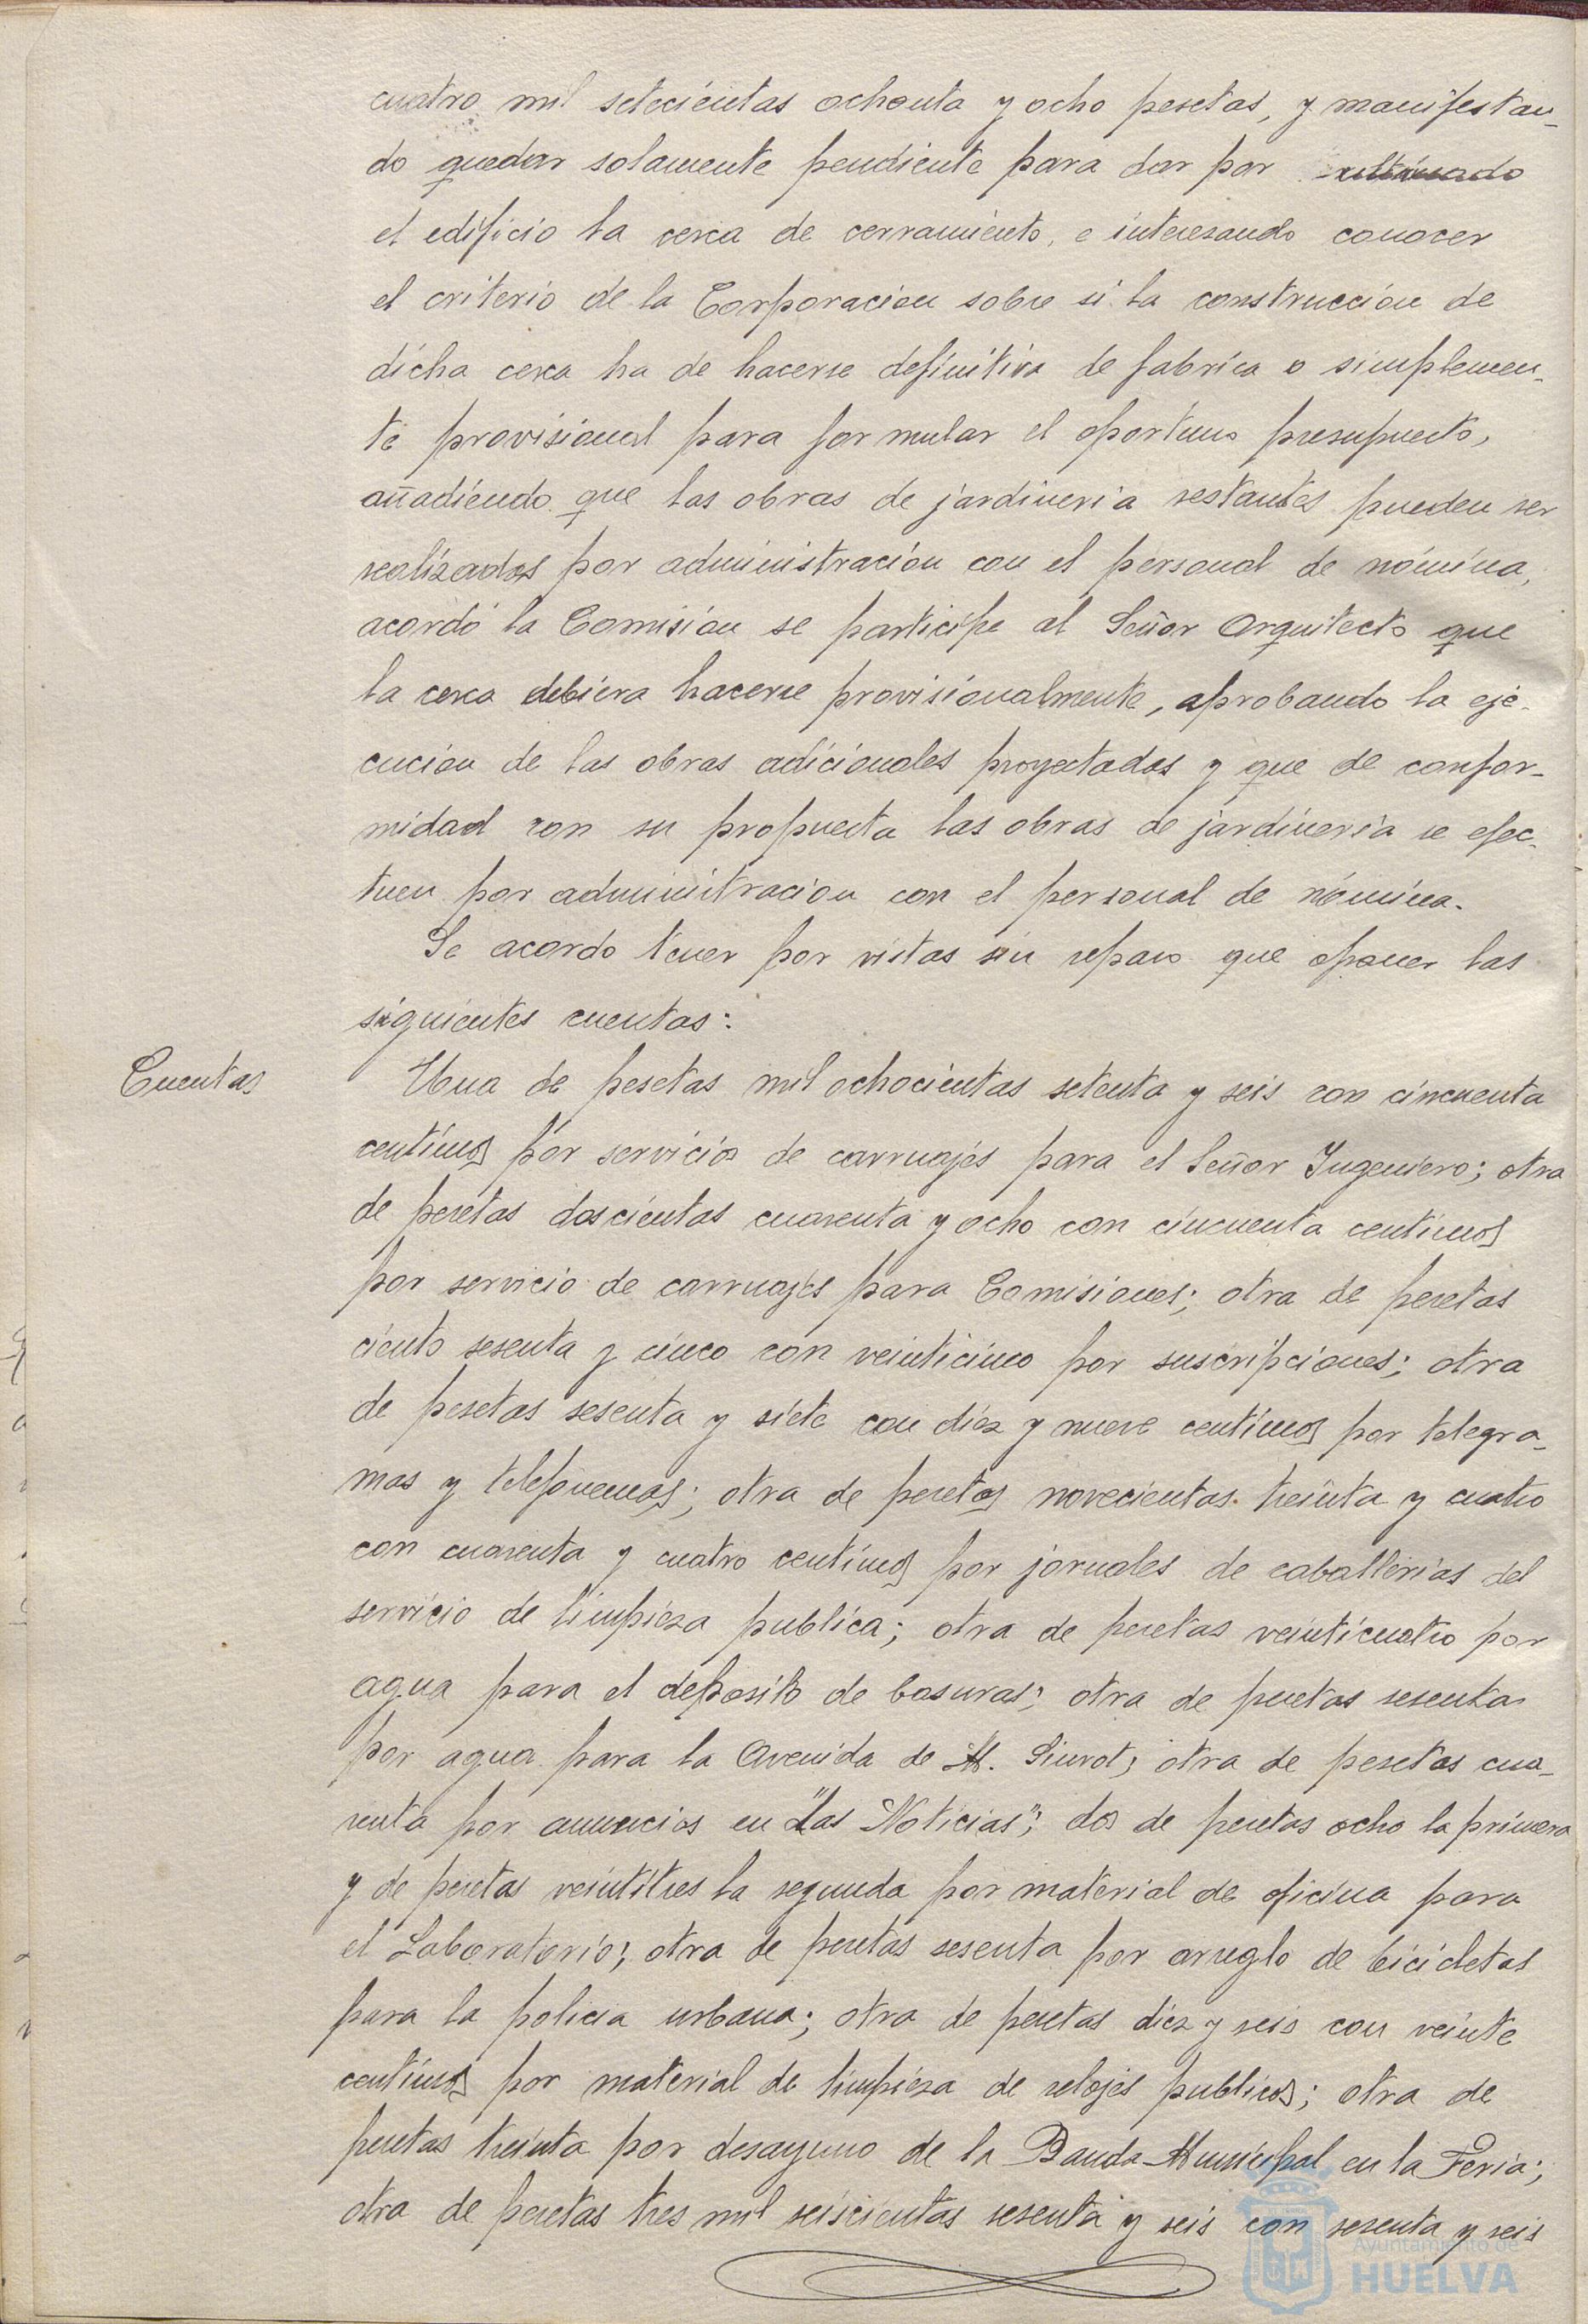 cuatro mil setecientas ochenta y ocho pesetas, y manifestan-
do quedar solamente pendiente para dar por ultimado
el edificio la cerca de cerramiento, e interesando conocer
el criterio de la Corporacion sobre si la construccion de
dicha cerca ha de hacerse definitiva de fabrica o simplemen-
te provisional para formular el oportuno presupuesto,
añadiendo que las obras de jardineria restantes pueden ser
realizadas por administración con el personal de nómina,
acordó la Comisión se participe al Señor Arquitecto que
la cerca debiera hacerse provisionalmente, aprobando la eje-
cucion de las obras adicionales proyectadas y que de confor-
midad con su propuesta las obras de jardineria se efec-
tuen por administracion con el personal de nómina.
Se acordo tener por vistas sin reparo que oponer las
siguientes cuentas:
Cuentas
Una de pesetas mil ochocientas setenta y seis con cincuenta
centimos por servicio de carruajes para el Señor Ingeniero; otra
de pesetas doscientas cuarenta y ocho con cincuenta centimos
por servicio de carruajes para Comisiones; otra de pesetas
ciento sesenta y cinco con veinticinco por suscripciones; otra
de pesetas sesenta y siete con diez y nueve centimos por telegra-
mas y telefonemas; otra de pesetas novecientas treinta y cuatro
con cuarenta y cuatro centimos por jornales de caballerias del
servicio de limpieza publica; otra de pesetas veinticuatro por
agua para el deposito de basuras; otra de pesetas sesenta
por agua para la Avenida de M. Siurot; otra de pesetas cua-
renta por anuncios en "Las Noticias"; dos de pesetas ocho la primera
y de pesetas veintitres la segunda por material de oficina para
el Laboratorio; otra de pesetas sesenta por arreglo de bicicletas
para la policia urbana; otra de pesetas diez y seis con veinte
centimos por material de limpieza de relojes publicos; otra de
pesetas treinta por desayuno de la Banda Municipal en la Feria;
otra de pesetas tres mil seiscientas sesenta y seis con sesenta y seis
Ayuntamiento de
HUELVA